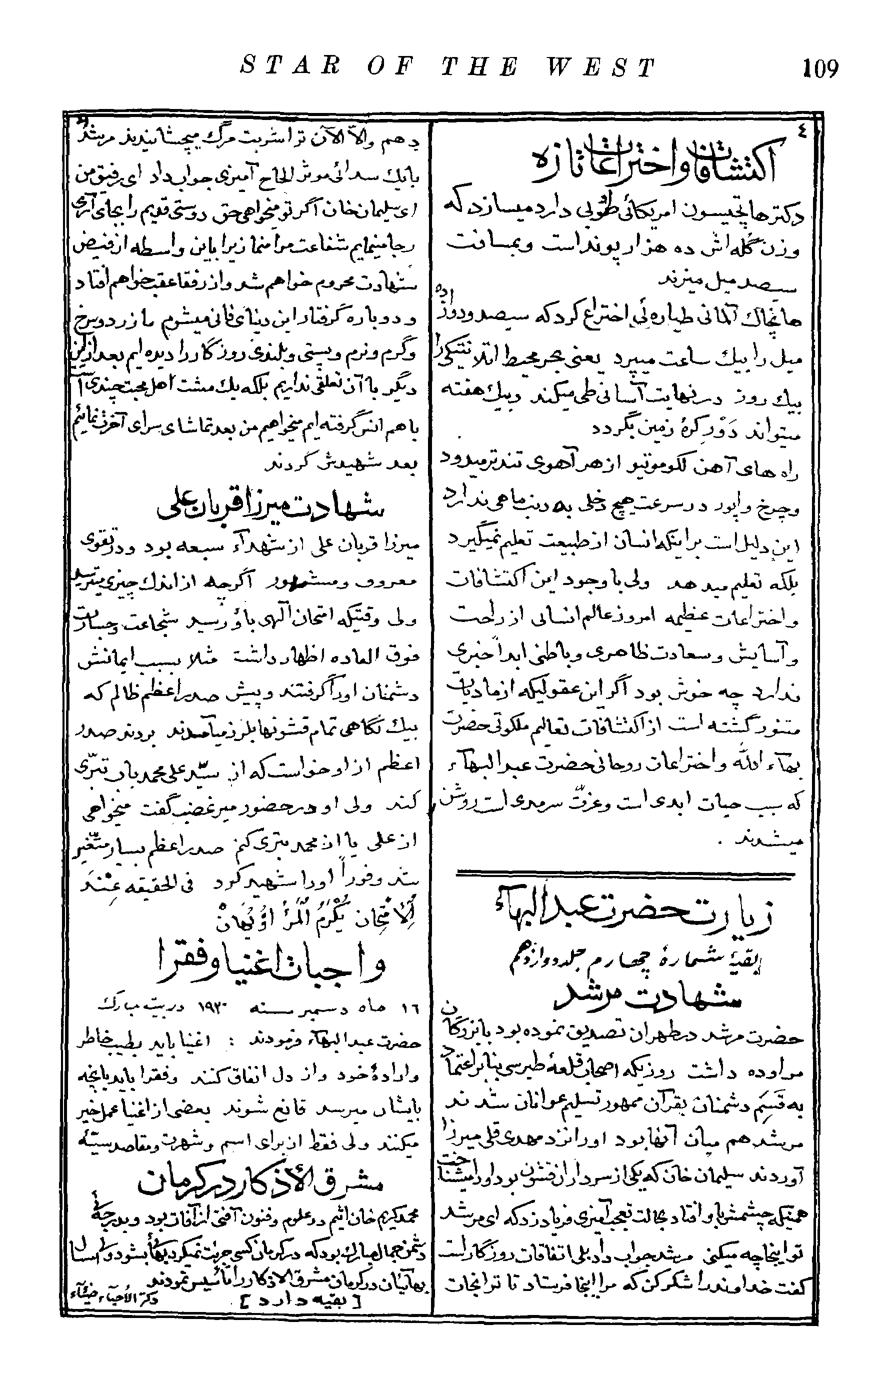 STAR OF THE WEST 109
٤
اکتشافات و اختراعات تازه
دکتر هاتچیسون امریکائی طوپی دارد میسازد که
وزن گله‌اش ده هزار پوند است و بمسافت
سیصد میل میزند
هانجاک آلمانی طیاره ئی اختراع کرد که سیصد و دوازده
میل را بیک ساعت میبرد یعنی بحر محیط اتلانتیکی را
بیک روز در نهایت آسانی طی میکند و بیک هفته
میتواند دَوْر کرهٔ زمین بگردد
راه های آهن لکوموتیو از هر آهوی تندتر میدود
و چرخ واپور در سرعت هیچ دخلی به دنب ماهی ندارد
این دلیل است بر اینکه انسان از طبیعت تعلیم نمیگیرد
بلکه تعلیم میدهد ولی با وجود این اکتشافات
و اختراعات عظیمه امروز عالم انسانی از راحت
و آسایش و سعادت ظاهری و باطنی ابداً خبری
ندارد چه خوش بود اگر این عقولیکه از مادیات
متنور گشته است از اکتشافات تعالیم ملکوتی حضرت
بهاء الله و اختراعات روحانی حضرت عبد البهاء
که سبب حیات ابدی است و عزّت سرمدی است روشن
میشدند .
زیارت حضرت عبد البهاء
بقیهٔ شمارهٔ چهارم جلد دوازدهم
شهادت مرشد
حضرت مرشد در طهران تصدیق نموده بود با بزرگان
مراوده داشت روزیکه اصحاب قلعهٔ طبرسی بنا بر اعتماد
به قسَمِ دشمنان بقرآن ممهور تسلیم عوانان شدند
مرشد هم میان آنها بود او را نزد مهدی قلی میرزا
آوردند سلیمان خان که یکی از سرداران قشون بود او را میشناخت
همینکه چشمش باو افتاد بحالت تعجب آمیزی فریاد زد که ای مرشد
تو اینجا چه میکنی مرشد جواب داد بلی اتفاقات روزگار است
گفت خداوند را شکر کن که مرا اینجا فرستاد تا ترا نجات
دهم والّا الآن ترا شربت مرگ میچشانیدند مرشد
بایک صدائی موثر الحاح آمیزی جواب داد ای رفیق من
ای سلیمان خان اگر تو میخواهی حق دوستی قدیم را بجای آری
رجا مینمایم شفاعت مرا منما زیرا باین واسطه از فیض
شهادت محروم خواهم شد و از رفقا عقب خواهم افتاد
و دوباره گرفتار این دنیای فانی میشوم ما زرد و سرخ
و گرم و نرم و پستی و بلندی روزگار را دیده ایم بعد از این
دیگر با آن تعلقی نداریم بلکه یک مشت اهل محبت چندی
باهم انس گرفته ایم میخواهیم من بعد تماشای سرای آخرت نمائیم
بعد شهیدش کردند
شهادت میرزا قربان علی
میرزا قربان علی از شهدآء سبعه بود و در تقوی
معروف و مشهور اگرچه از اندک چیزی میترسید
ولی وقتیکه امتحان الهی باو رسید شجاعت و جسارت
فوق العاده اظهار داشت مثلا بسبب ایمانش
دشمنان او را گرفتند و پیش صدر اعظم ظالم که
بیک نگاهی تمام قشونها بلرز میآمدند بردند صدر
اعظم از او خواست که از سیّد علی محمد باب تبرّی
کند ولی او در حضور میر غضب گفت میخواهی
از علی یا از محمد تبری کنم صدر اعظم بسیار متغّیر
شد و فوراً او را شهید کرد فی الحقیقه عِنْدَ
الْاِمْتِحان یُکْرَمُ الْمَرْءُ اَوْ یُهانْ
واجبات اغنیا و فقرا
١٦ ماه دسمبر سنه ١٩٢٠ در بیت مبارک
حضرت عبد البهآء فرمودند : اغنیا باید بطیب خاطر
و ارادهٔ خود و از دل انفاق کنند و فقرا باید بآنچه
بایشان میرسد قانع شوند بعضی از اغنیا عمل خیر
میکنند ولی فقط از برای اسم و شهرت و مقاصد سیّئه
مشرق الاذکار در کرمان
محمد کریم خان اثیم در علوم و فنون آفتی از آفات بود و بدرجهٔ
دشمن جمال مبارک بود که در کرمان کسی جرئت نمیکرد بهائی بشود و امسال
بهائیان در کرمان مشرق الاذکار را تأسیس نمودند
[ بقیه دارد ]